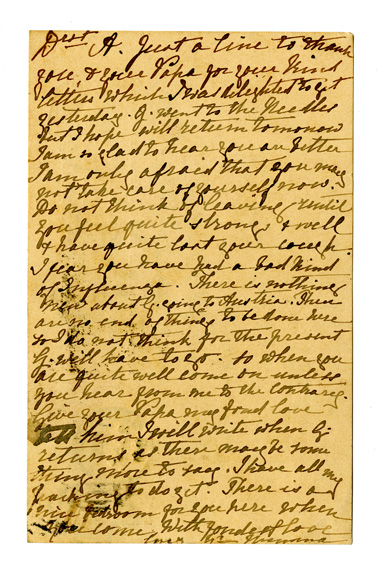 Drst A. Just a line to thank
you, & your Papa for your kind
letters which I was delighted to get
yesterday. G. went to the Needles
but I hope will return tomorrow
I am so glad to hear you are better
I am only afraid that you may
not take care of yourself now.
Do not think of leaving until
you feel quite strong & well
& have quite lost your cough.
I fear you have had a bad kind
of Influenza. There is nothing
new about G. going to Austria. There
are no end of things to be done here
so I do not think for the present
G. will have to go. So when you
are quite well come on unless
you hear from me to the contrary.
Give your Papa my fond love
tell him I will write when G.
returns as there may be some
thing more to say. I have all my
packing to do yet. There is a
nice bedroom for you here when
you come. With fondest love